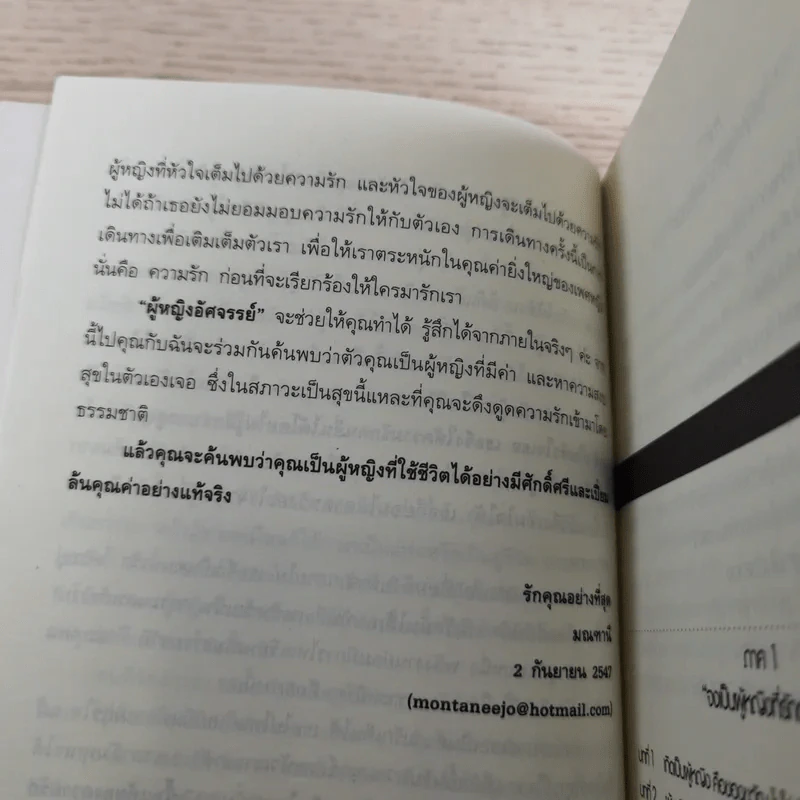 ผู้หญิงที่หัวใจเต็มไปด้วยความรัก และหัวใจของผู้หญิงจะเต็มไปด้วยความรัก
ไม่ได้ถ้าเธอยังไม่ยอมมอบความรักให้กับตัวเอง การเดินทางครั้งนี้เป็น
เดินทางเพื่อเติมเต็มตัวเรา เพื่อให้เราตระหนักในคุณค่ายิ่งใหญ่ของเพศหญิง
นั่นคือ ความรัก ก่อนที่จะเรียกร้องให้ใครมารักเรา
“ผู้หญิงอัศจรรย์” จะช่วยให้คุณทำได้ รู้สึกได้จากภายในจริงๆ ค่ะ จาก
นี้ไปคุณกับฉันจะร่วมกันค้นพบว่าตัวคุณเป็นผู้หญิงที่มีค่า และหาความสงบ
สุขในตัวเองเจอ ซึ่งในสภาวะเป็นสุขนี้แหละที่คุณจะดึงดูดความรักเข้ามาโดย
ธรรมชาติ
แล้วคุณจะค้นพบว่าคุณเป็นผู้หญิงที่ใช้ชีวิตได้อย่างมีศักดิ์ศรีและเปี่ยม
ล้นคุณค่าอย่างแท้จริง
รักคุณอย่างที่สุด
มณฑานี
2 กันยายน 2547
(montaneejo@hotmail.com)
ภาค 1
“จงเป็นผู้หญิงที่รัก
บทที่ 1
บทที่ 2